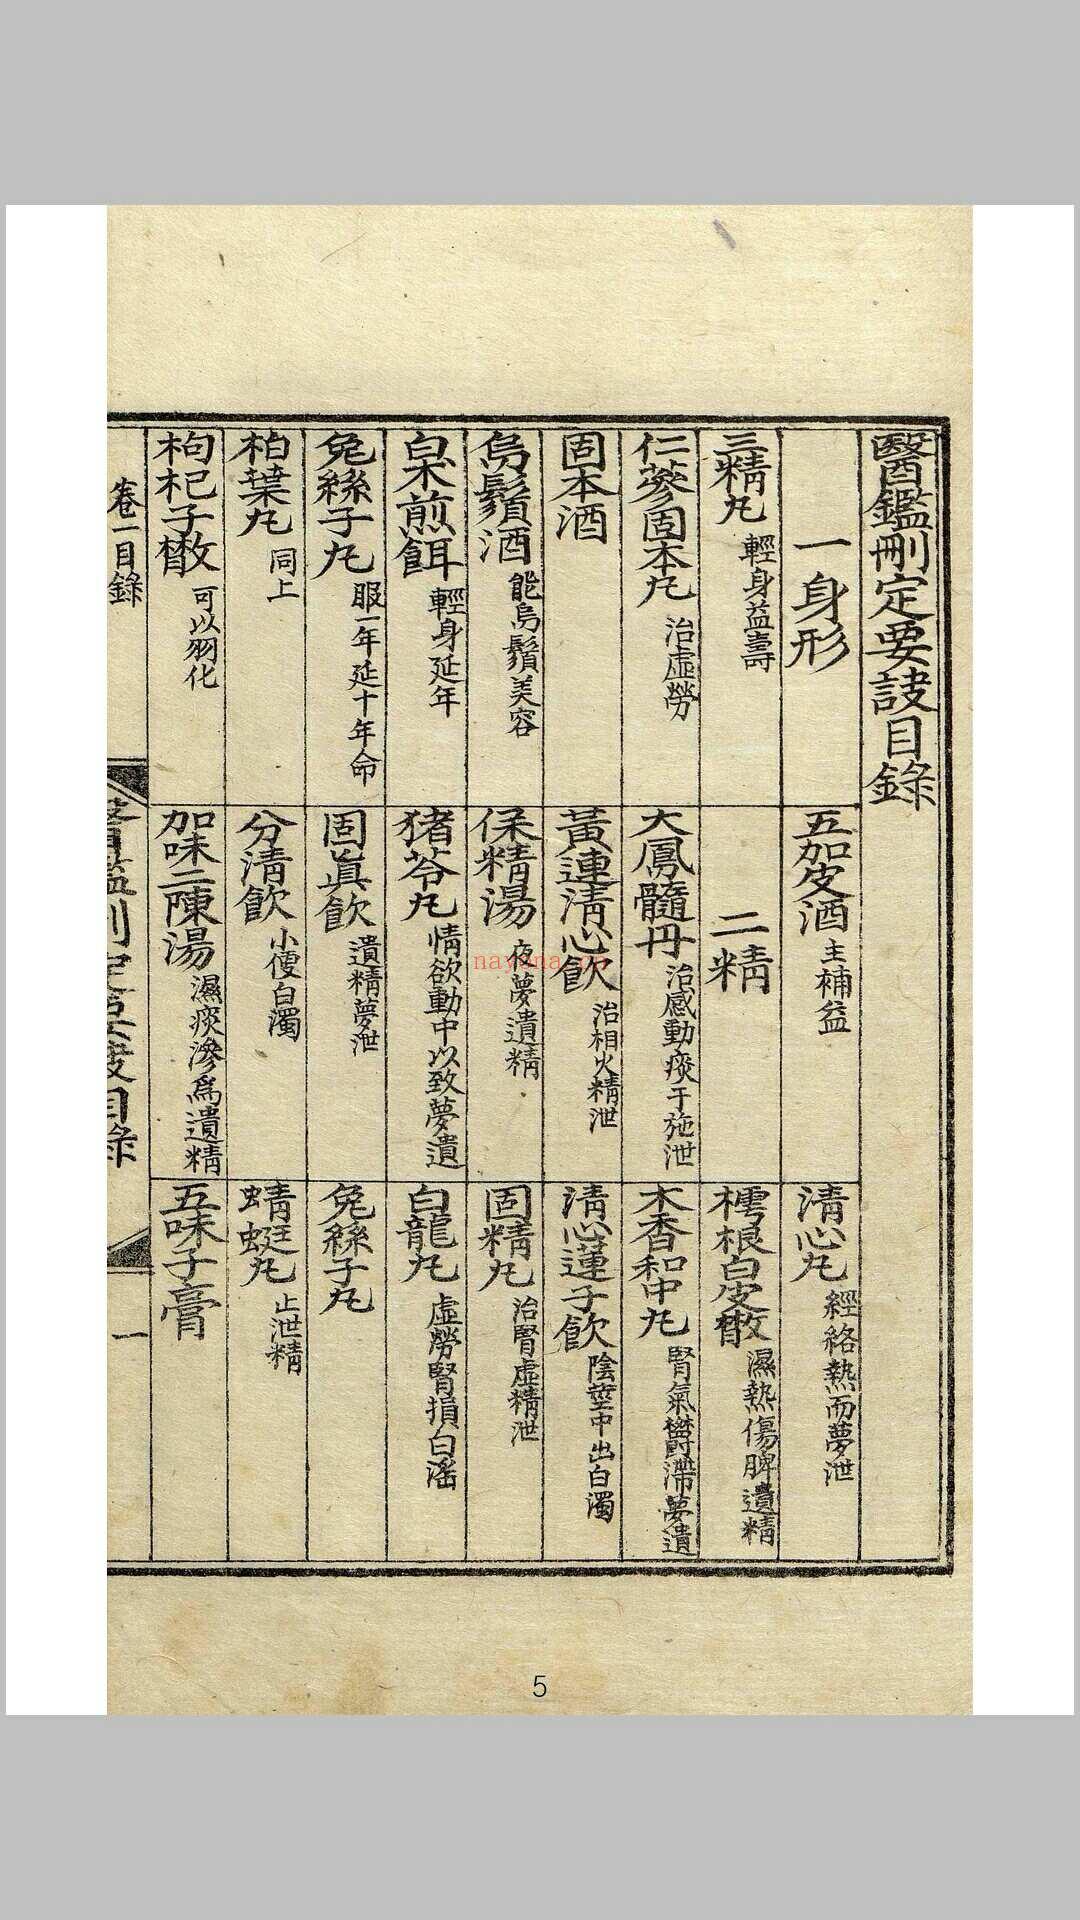 醫鑑刪定要訣目錄
一身形
三精丸 輕身益壽
仁蔘固本丸 治虛勞
固本酒
烏鬚酒 能烏鬚美容
白朮煎餌 輕身延年
兔絲子丸 服一年延十年命
柏葉丸 同上
枸杞子散 可以羽化
五加皮酒 主補益
二精
大鳳髓丹 治感動痰干施泄
黃連清心飲 治相火精泄
保精湯 夜夢遺精
猪苓丸 情欲動中以致夢遺
固眞飲 遺精夢泄
分清飮 小便白濁
加味二陳湯 濕痰滲爲遺精
清心丸 經絡熱而夢泄
樗根白皮散 濕熱傷脾遺精
木香和中丸 腎氣欝滯夢遺
清心蓮子飲 陰莖中出白濁
固精丸 治腎虛精泄
白龍丸 虛勞腎損白淫
兔絲子丸
蜻蜓丸 止泄精
五味子膏
卷一目錄
醫鑑刪定要訣目錄
一
nayona.cn
5